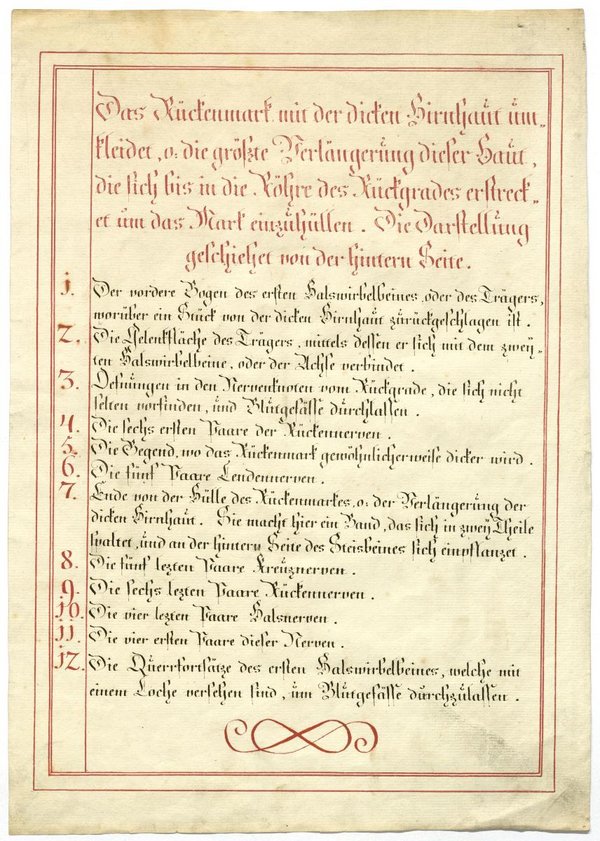 Das Rückenmark mit der dicken Hirnhaut um-
kleidet, o: die größte Verlängerung dieser Haut,
die sich bis in die Röhre des Rückgrades erstreck-
et um das Mark einzuhüllen. Die Darstellung
geschiehet von der hintern Seite.
1. Der vordere Bogen des ersten Halswirbelbeines, oder des Trägers,
worüber ein Stück von der dicken Hirnhaut zurückgeschlagen ist.
2. Die Gelenkfläche des Trägers, mittels dessen er sich mit dem zwey-
ten Halswirbelbeine, oder der Achse verbindet.
3. Oefnungen in den Nervenknoten vom Rückgrade, die sich nicht
selten vorfinden, und Blutgefässe durchlassen.
4. Die sechs ersten Paare der Rückennerven.
5. Die Gegend, wo das Rückenmark gewöhnlicherweise dicker wird.
6. Die fünf Paare Lendennerven.
7. Ende von der Hülle des Rückenmarkes, o: der Verlängerung der
dicken Hirnhaut. Sie macht hier ein Band, das sich in zwey Theile
spaltet, und an der hintern Seite des Steisbeines sich einpflanzet.
8. Die fünf lezten Paare Kreuznerven.
9. Die sechs lezten Paare Rückennerven.
10. Die vier lezten Paare Halsnerven.
11. Die vier ersten Paare dieser Nerven.
12. Die Querfortsätze des ersten Halswirbelbeines, welche mit
einem Loche versehen sind, um Blutgefässe durchzulassen.